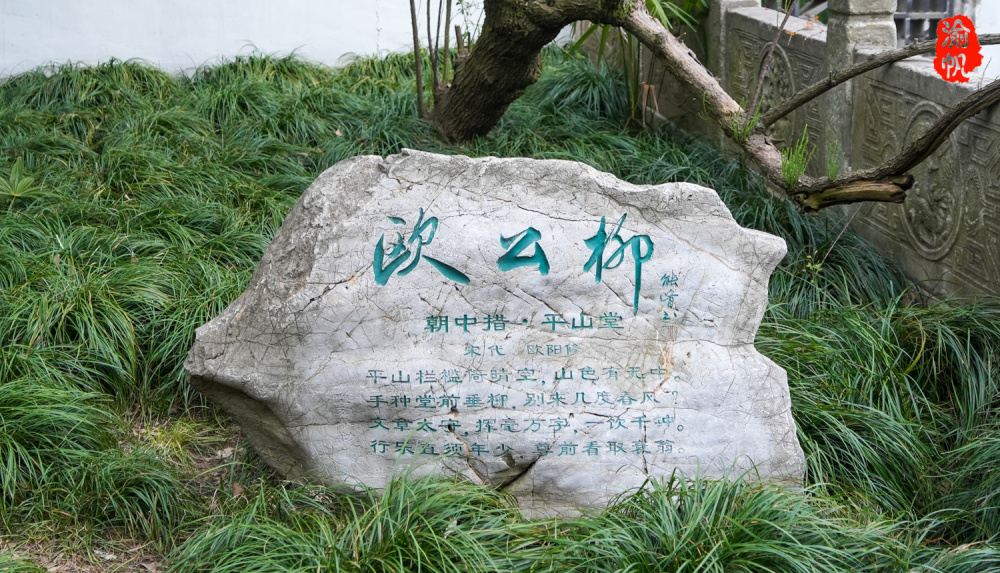 欧公柳
朝中措·平山堂
宋代 欧阳修
平山栏槛倚晴空，山色有无中。
手种堂前垂柳，别来几度春风？
文章太守，挥毫万字，一饮千钟。
行乐直须年少，尊前看取衰翁。